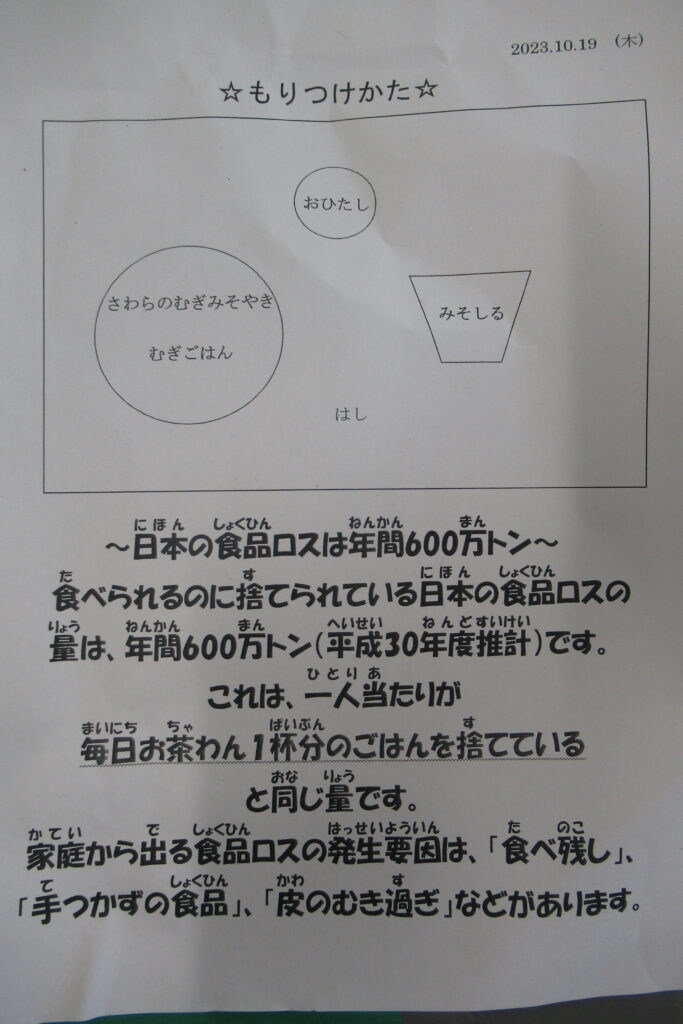 2023.10.19 (木)
☆もりつけかた☆
おひたし
さわらのむぎみそやき
みそしる
むぎごはん
はし
～日本の食品ロスは年間600万トン～
食べられるのに捨てられている日本の食品ロスの
量は、年間600万トン(平成30年度推計)です。
これは、一人当たりが
毎日お茶わん1杯分のごはんを捨てている
と同じ量です。
家庭から出る食品ロスの発生要因は、「食べ残し」、
「手つかずの食品」、「皮のむき過ぎ」などがあります。